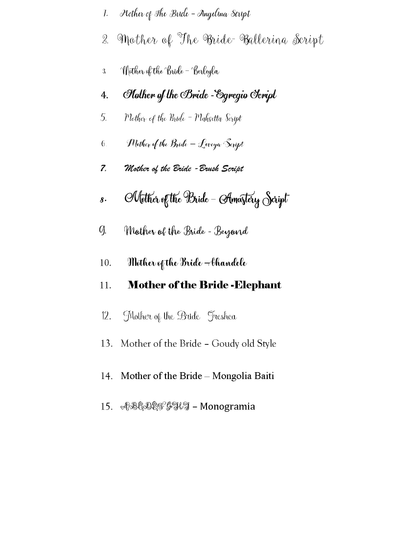 1. Mother of The Bride - Angelina Script
2. Mother of The Bride- Ballerina Script
3. Mother of the Bride -
4. Mother of the Bride -Egregio Script
5. Mother of the Bride - Script
6. Mother of the Bride – Script
7. Mother of the Bride -Brush Script
8. Mother of the Bride - Amastery Script
9. Mother of the Bride - Beyond
10. Mother of the Bride -Chandele
11. Mother of the Bride -Elephant
12. Mother of the Bride Freshea
13. Mother of the Bride – Goudy old Style
14. Mother of the Bride – Mongolia Baiti
15. ABCDEFGHI – Monogramia